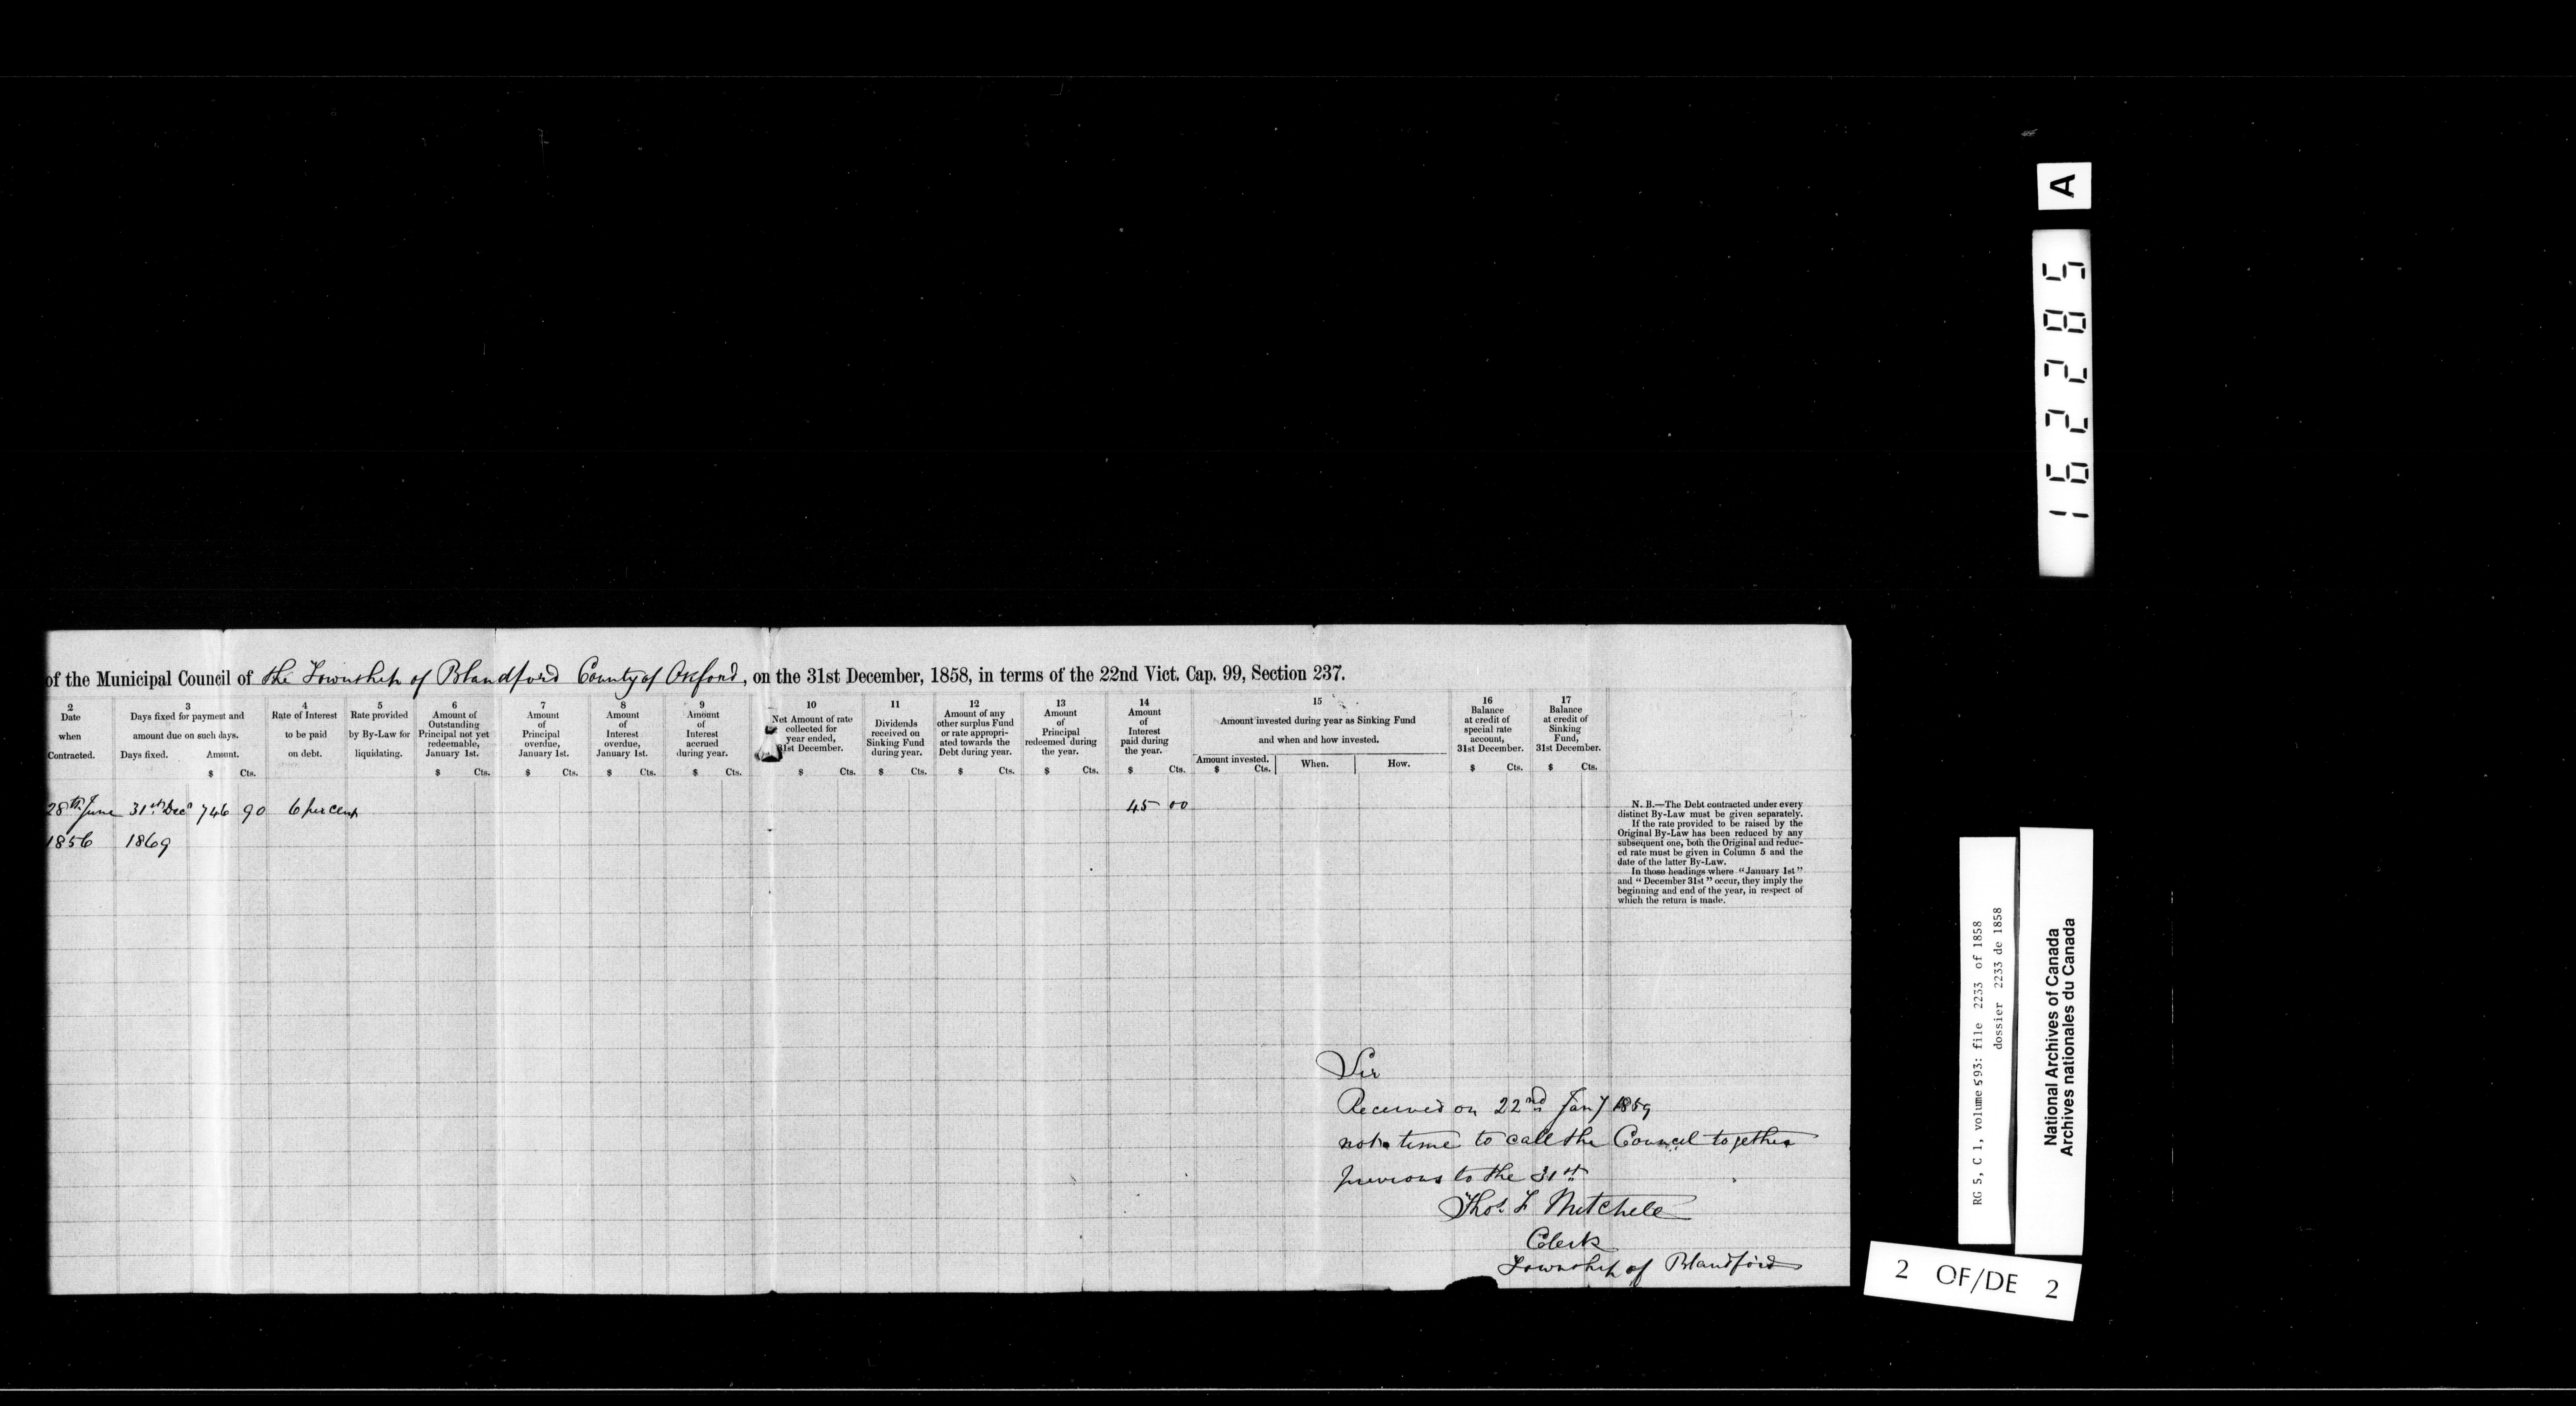 of the Municipal Council of the Township of Blandford County of Oxford, on the 31st December, 1858, in terms of the 22nd Vict. Cap. 99, Section 237.
2
Date
when
Contracted.
3
Days fixed for payment and
amount due on such days.
Days fixed. Amount.
$ Cts.
4
Rate of Interest
to be paid
on debt.
5
Rate provided
by By-Law for
liquidating.
6
Amount of
Outstanding
Principal not yet
redeemable,
January 1st.
$ Cts.
7
Amount
of
Principal
overdue,
January 1st.
$ Cts.
8
Amount
of
Interest
overdue,
January 1st.
$ Cts.
9
Amount
of
Interest
accrued
during year.
$ Cts.
10
Net Amount of rate
collected for
year ended,
31st December.
$ Cts.
11
Dividends
received on
Sinking Fund
during year.
$ Cts.
12
Amount of any
other surplus Fund
or rate appropri-
ated towards the
Debt during year.
$ Cts.
13
Amount
of
Principal
redeemed during
the year.
$ Cts.
14
Amount
of
Interest
paid during
the year.
$ Cts.
15
Amount invested during year as Sinking Fund
and when and how invested.
Amount invested. When. How.
$ Cts.
16
Balance
at credit of
special rate
account,
31st December.
$ Cts.
17
Balance
at credit of
Sinking
Fund,
31st December.
$ Cts.
28th June 31st Decr 746 90 6 per cent 45 00
1856 1869
N. B.—The Debt contracted under every
distinct By-Law must be given separately.
If the rate provided to be raised by the
Original By-Law has been reduced by any
subsequent one, both the Original and reduc-
ed rate must be given in Column 5 and the
date of the latter By-Law.
In those headings where "January 1st"
and "December 31st" occur, they imply the
beginning and end of the year, in respect of
which the return is made.
Sir
Received on 22nd Jany 1859
not time to call the Council together
previous to the 31st
Thos. F Mitchell
Clerk
Township of Blandford
A
162285
RG 5, C 1, volume 593: file 2233 of 1858
dossier 2233 de 1858
National Archives of Canada
Archives nationales du Canada
2 OF/DE 2